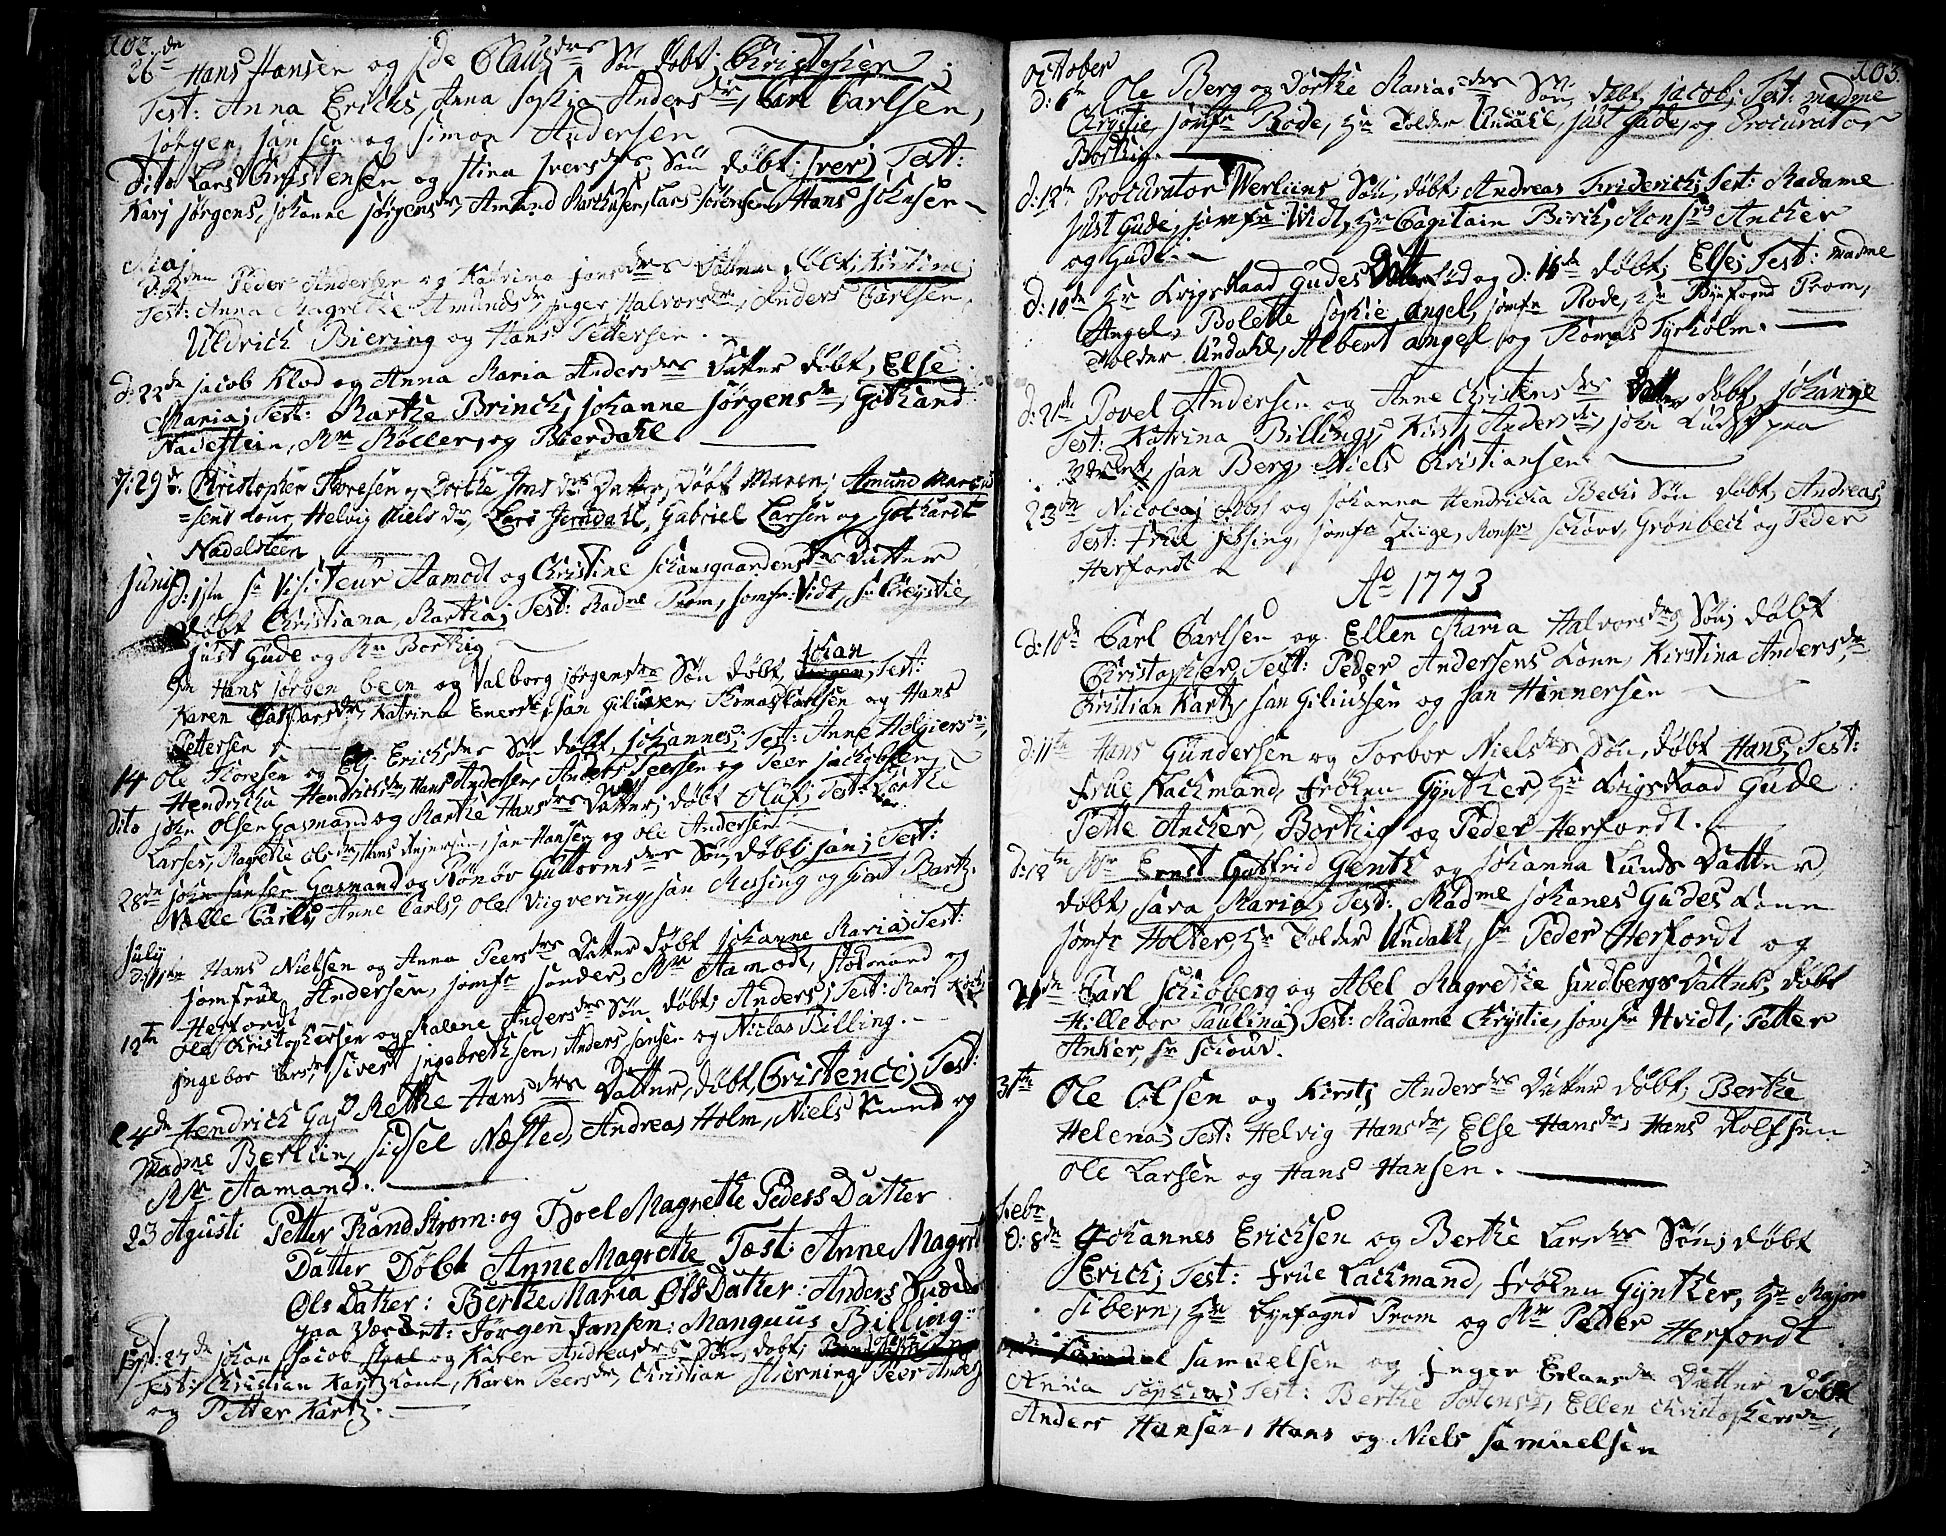 102.
26de Hans Hansen og Ide Clausdrs Søn døbt; Christopher;
Test: Anna Erichs, Anna Sophia Andersdr, Carl Carlsen,
Jørgen Jansen og Simon Andersen
Dito Lars Christensen og Stina Iversdrs Søn døbt; Iver; Test:
Karj Jørgens, Johanne Jørgensdr, Amund Lars Sørensen, Hans Johnsen
Maj
Peder Andersen og Katrina Jonsdrs døbt; Kirstine;
Test: Anna Magrethe Amundsdr, Inger Halvorsdr, Anders Carlsen,
Uldrich Biering og Hans Pettersen.
d: 22de Jacob Klod og Anna Maria Andersdrs Datter døbt, Else
Maria; Test: Marthe Brinch, Johanne Jørgensdr, Gothard
Nadelstein, Mr Møller, og Bierdahl
d: 29de: Christopher Thoresen og Dorthe Jonsdrs Datter, døbt Maren; Amund
sens Kone, Helvig Nielsdr, Lars Jerndahl, Gabriel Larsen og Gothardt
Nadelsteen
Junij d: 1ste Sr Visiteur Aamodt og Christine Schansgaardens Datter
døbt Christiana Marthia; Test: Madme Prom, Jomfr: Vidt, Sr Chrystie,
Just Gude og Mr Borthig
Johan
Hans Jørgen Been og Valborg Jørgensdrs Søn døbt, Test:
Karen Katrina Jan Giliusen, Thomas Carlsen og Hans
Pettersen
14 Ole Thoresen og Erichsdrs Søn døbt, Johannes; Test: Anne Holgiersdr,
Hendricha Hendrichsdr, Hans Andersen, Anders Peersen og Peer Jacobsen
dito John Olsen Gasmand og Marthe Hansdrs Datter; døbt Oluf; Test: Marthe
Larses, Magrethe Olsdr, Hans Jan Hansen og Ole Andersen.
28de John Jansen Gasmand og Rønøv Guttormsdrs Søn døbt; Jan; Test:
Malle Carls, Anne Carls, Ole Viigvering, Jan Messing og Gert Bartz.
July
d: 11te Hans Nielsen og Anna Peersdrs Datter døbt Johanne Maria; Test:
Jomfrue Andersen, Jomfr Sonder, Mr Aamodt, og
Herfordt
12te Ole Christophersen og Malene Andersdrs Søn døbt; Anders; Test: Marj
Ingebor Larsdr, Sivert Ingebrethsen, Anders Jansen og Niclas Billing.
24de Hendrich Gas Mette Hansdrs Datter, døbt, Christence; Test:
Madme Berlin, Sidsel Næsted, Andreas Holm, Niels Lund og
Mr Aamand.
23 Agusti Petter Randstrom: og Boel Magrethe Peders Datter
Datter Døbt Anne Magrethe Test: Anne Magret
Ols Datter: Berthe Maria Øls Datter: Anders
paa Værdet: Jørgen Jansen: Manguus Billing:
Spt: 27de Johan Jacob og Karen Andreasdrs Søn, døbt,
Test: Christian Kartz Kone, Karen Peersdr, Christian Hierning Peer Anders
og Petter Kartz.
103.
October
d: 6te Ole Berg og Dorthe Mariasdrs Søn døbt, Jacob; Test: Madme
Chrystie, Jomfr Rode, Hr Tolder Undahl, Just Gude, og Procurator
Borthig.
d: 12te Procurator Werliins Søn, døbt, Andreas Friderich; Test: Madame
Just Gude, Jomfr Vidt, Hr Capitain Birch, Monsr Ancher
og Gude
d: 10de Hr Krigsraad Gudes Datter fød og d: 16de døbt; Else; Test: Madme
Angel, Bolette Sophie Angel, Jomfr Rode, Hr Byefoged Prom,
Tolder Undahl, Albert Angel, og Thomas Tyrholm.
d: 21de Povel Andersen og Anne Christensdrs Datter døbt, Johanne
Test: Katrina Billings, Kirst Andersdr, John Kudsk paa
Værket, Jan Berg, Niels Christiansen
23de Nicolaj og Johanna Hendricha Bechs Søn døbt, Andreas;
Test: Frue Jessing, Jomfr Monsr Schiøv, Grønbech og Peder
Herfordt
Ao 1773
d: 10de Carl Carlsen og Ellen Maria Halvorsdrs Søn; døbt
Christopher, Test: Peder Andersens Kone, Kirstina Andersdr,
Christian Kartz, Jan Giliudsen og Jan Hinnersen
d: 11te Hans Gundersen og Torbor Nielsdrs Søn, døbt Hans; Test:
Frue Lachmand, Frøken Gynther, Hr Krigsraad Gude
Pette Ancher, Borthig og Peder Herfordt.
d: 12te Mr Ernst Gottfrid Gentz og Johanna Lunds Datter
døbt; Sara Maria; Test: Madme Johanes Gudes Kone
Jomfr Holter, Hr Tolder Undahl, Sr Peder Herfordt og
21de Carl Schiøberg og Abel Magrethe Sundbergs Datter; døbt
Hillebor Paulina; Test: Madame Chrystie, Jomfr Hvidt, Petter
Anker, Sr Schiøv.
31te Ole Olsen og Kirstj Andersdrs Datter døbt; Berthe
Helena; Test: Helvig Hansdr, Else Hansdr, Hans Rolfsen
Ole Larsen og Hans Hansen.
Febr
d: 8de Johannes Erichsen og Berthe Larsdrs Søn; døbt
Erich; Test: Frue Lachmand, Frøken Gynther, Hr Major
Sibern, Hr Byefoged Prom og Mr Peder Herfordt
Samuelsen og Inger Erlandsdr Datter døbt
Anna Sophia; Test: Berthe Ellen Christophersdr,
Anders Hansen, Hans og Niels Samuelsen